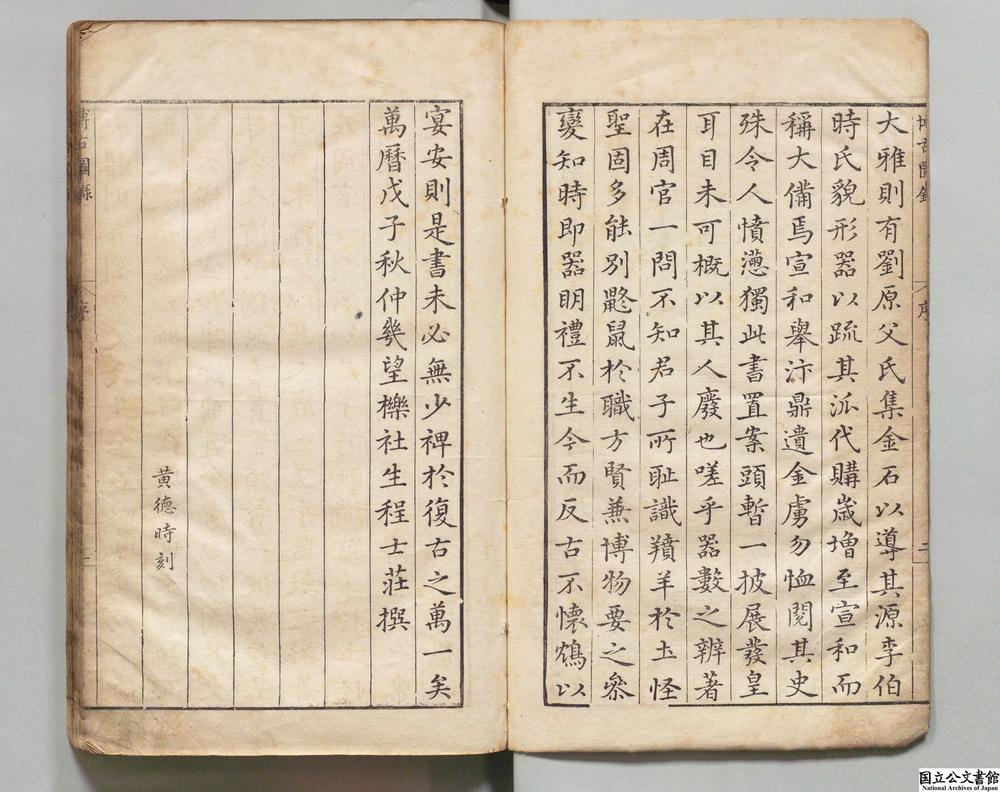 大雅則有劉原父氏集金石以導其源李伯
時氏貌形器以䟽其派代購歲增至宣和而
稱大備焉宣和舉汴鼎遺金虜勿恤閱其史
殊令人憤懣獨此書置案頭暫一披展發皇
耳目未可概以其人廢也嗟乎器數之辨著
在周官一問不知君子所耻識羵羊於土怪
聖固多能別鼮鼠於職方賢蒹博物要之叅
變知時即器明禮不生今而反古不懷鴆以
宴安則是書未必無少裨於復古之萬一矣
萬曆戊子秋仲幾望櫟社生程士莊撰
黃德時刻
博古圖錄
序
二
博古圖錄
序
三
国立公文書館
National Archives of Japan